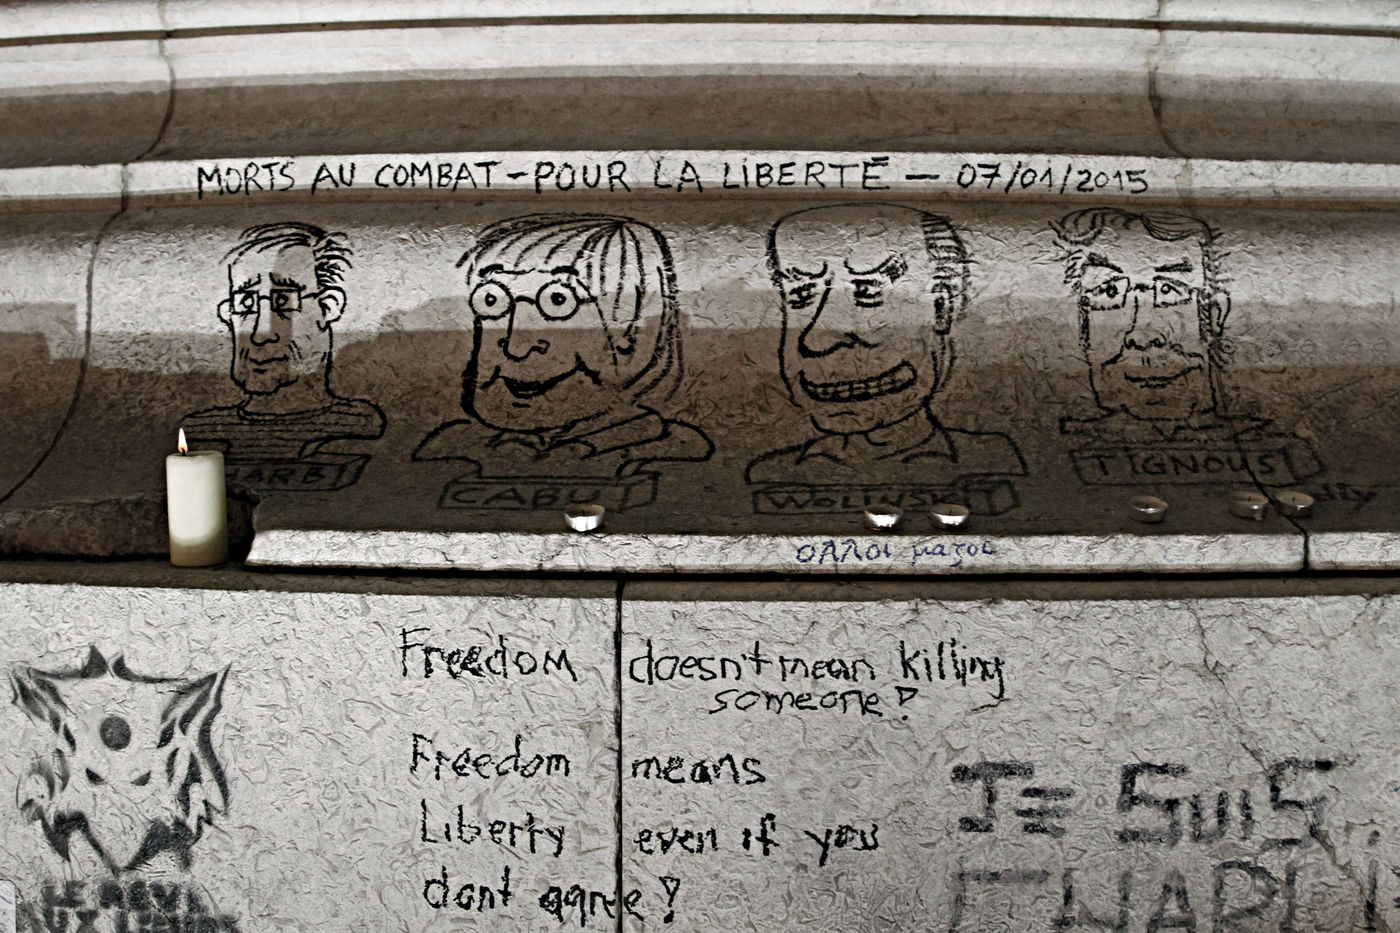 MORTS AU COMBAT - POUR LA LIBERTÉ - 07/01/2015
CHARB
CABUT
WOLINSKI
TIGNOUS
όλλοι μαζοί
Freedom doesn't mean killing
someone!
Freedom means
Liberty even if you
dont agree!
JE SUIS
CHARLI
LE RÊVE
AUX